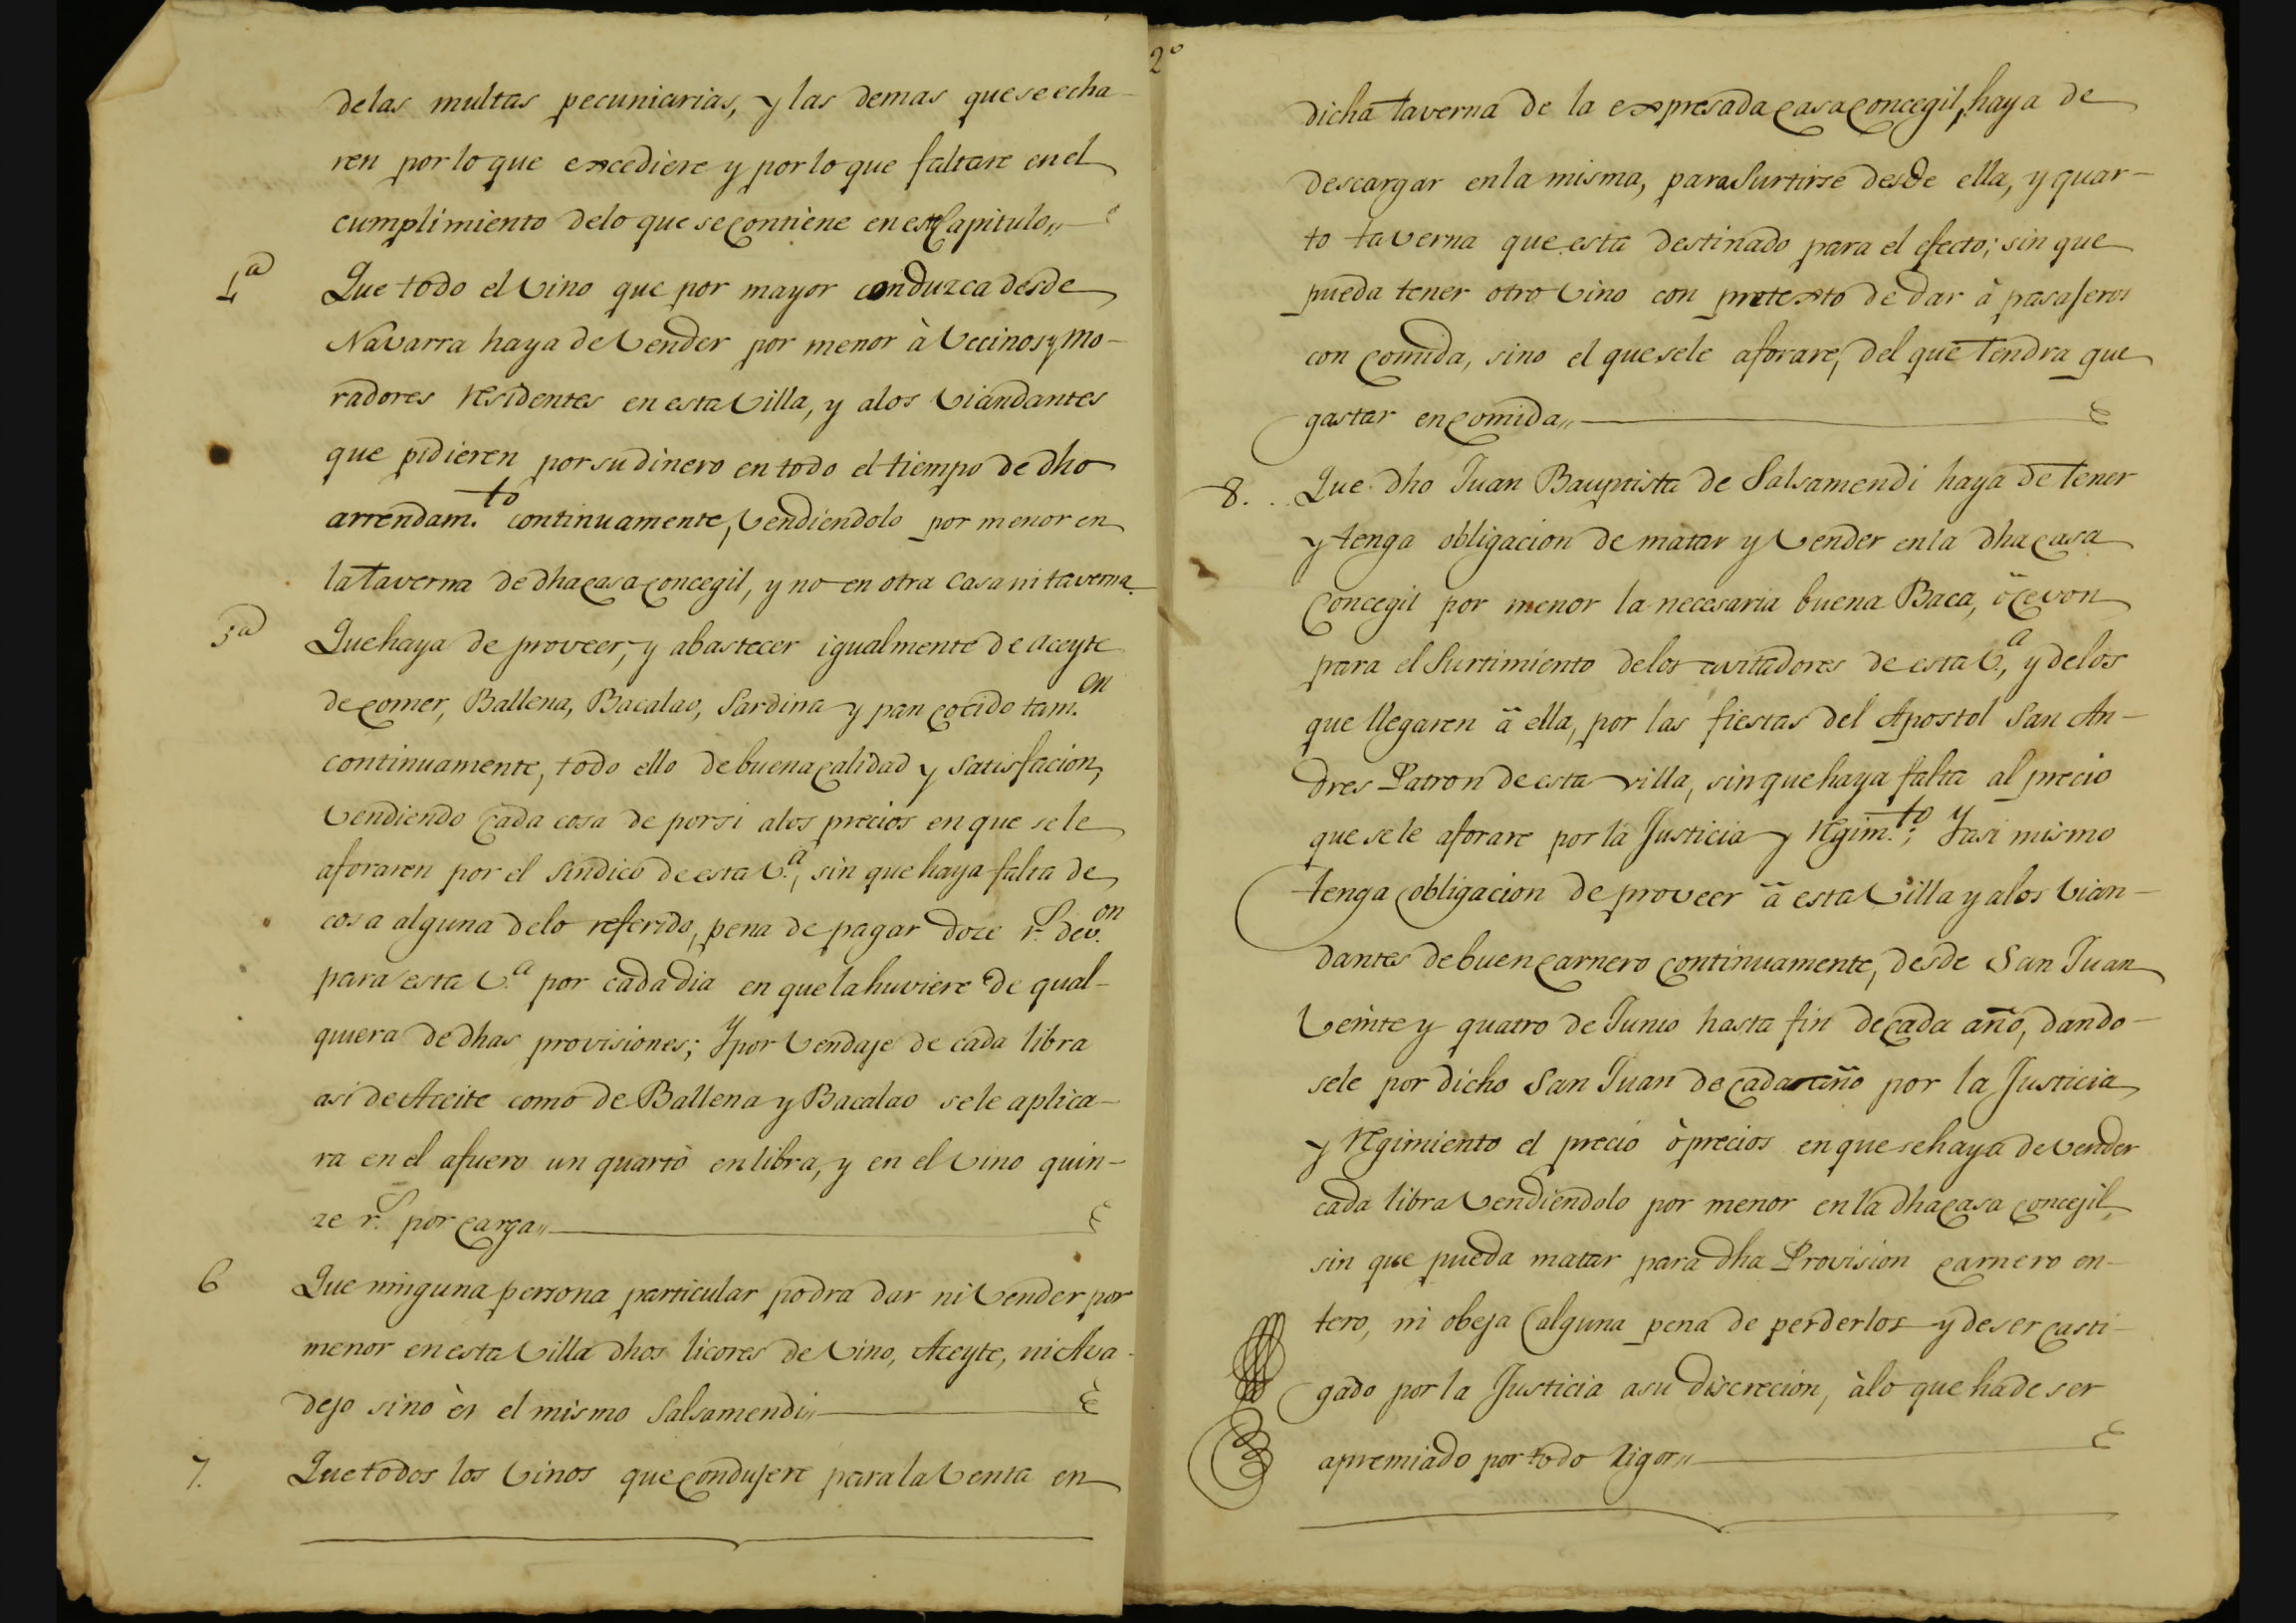 delas multas pecuniarias, y las demas que se echa-
ren por lo que excediere y por lo que faltare en el
cumplimiento delo que se contiene en este Capitulo,,
4ª Que todo el vino que por mayor conduzca desde
Navarra haya de vender por menor à vecinos y mo-
radores residentes en esta Villa, y alos viandantes
que pidieren por su dinero en todo el tiempo de dho
arrendam.to continuamente, vendiendolo por menor en
la taverna de dha casa concegil, y no en otra casa ni taverna.
5ª Que haya de proveer, y abastecer igualmente de aceyte
de comer, Ballena, Bacalao, Sardina y pan cocido tam.on
continuamente, todo ello de buena calidad y satisfacion,
vendiendo cada cosa de porsi alos precios en que se le
aforaren por el sindico de esta V.ª, sin que haya falta de
cosa alguna delo referido, pena de pagar doze r.s de v.on
para esta V.ª por cada dia en que la huviere de qual-
quiera de dhas provisiones; Y por vendaje de cada libra
asi de Aceite como de Ballena y Bacalao se le aplica-
ra en el afuero un quarto en libra, y en el vino quin-
ze r.s por carga,,
6 Que ninguna persona particular podra dar ni vender por
menor en esta Villa dhos licores de vino, Aceyte, ni Aba-
dejo sino es el mismo Salsamendi,,
7. Que todos los vinos que condujere para la venta en
2º
dicha taverna de la expresada casa concegil, haya de
descargar en la misma, para surtirse desde ella, y quar-
to taverna que esta destinado para el efecto; sin que
pueda tener otro vino con pretexto de dar à pasajeros
con comida, sino el que se le aforare, del que tendra que
gastar en comida,,
8. Que dho Juan Bauptista de Salsamendi haya de tener
y tenga obligacion de matar y vender en la dha casa
Concegil por menor la necesaria buena Baca, ò cevon
para el surtimiento delos avitadores de esta V.ª, y delos
que llegaren ã ella, por las fiestas del Apostol San An-
dres Patron de esta villa, sin que haya falta al precio
que se le aforare por la Justicia y regim.to; Y asi mismo
tenga obligacion de proveer ã esta Villa y alos vian-
dantes de buen carnero continuamente, desde San Juan
veinte y quatro de Junio hasta fin de cada año, dando-
sele por dicho San Juan de cada año por la Justicia
y regimiento el precio ò precios en que se haya de vender
cada libra vendiendolo por menor en la dha casa concejil,
sin que pueda matar para dha Provision carnero en-
tero, ni obeja alguna pena de perderlos y de ser casti-
gado por la Justicia a su discrecion, à lo que ha de ser
apremiado por todo rigor,,